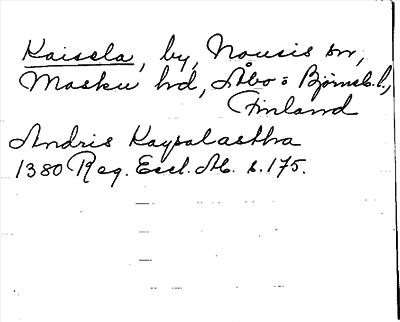 Kaisela, by, Nousis sn,
Masku hd, Åbo o Björneb. l.,
Finland
Andris Kaysalastha
1380 Reg. Eccl. Ab. s. 175.